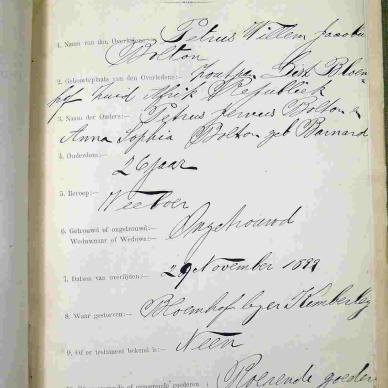 1. Naam van den Overledene:— Petrus Willem Jacobus
Bolton
2. Geboorteplaats van den Overledene:— Zoutpan Dist. Bloem-
hof Zuid Afrik Republiek
3. Naam der Ouders:— Petrus Bolton en
Anna Sophia Bolton geb Barnard
4. Ouderdom:—
26 jaar
5. Beroep:—
Veeboer
6. Getrouwd of ongetrouwd:— Ongetrouwd
Weduwnaar of Weduwe:—
7. Datum van overlijden:— 29 November
8. Waar gestorven:— Bloemhof by Kimberley
9. Of er testament bekend is:— Neen
Roerende goederen